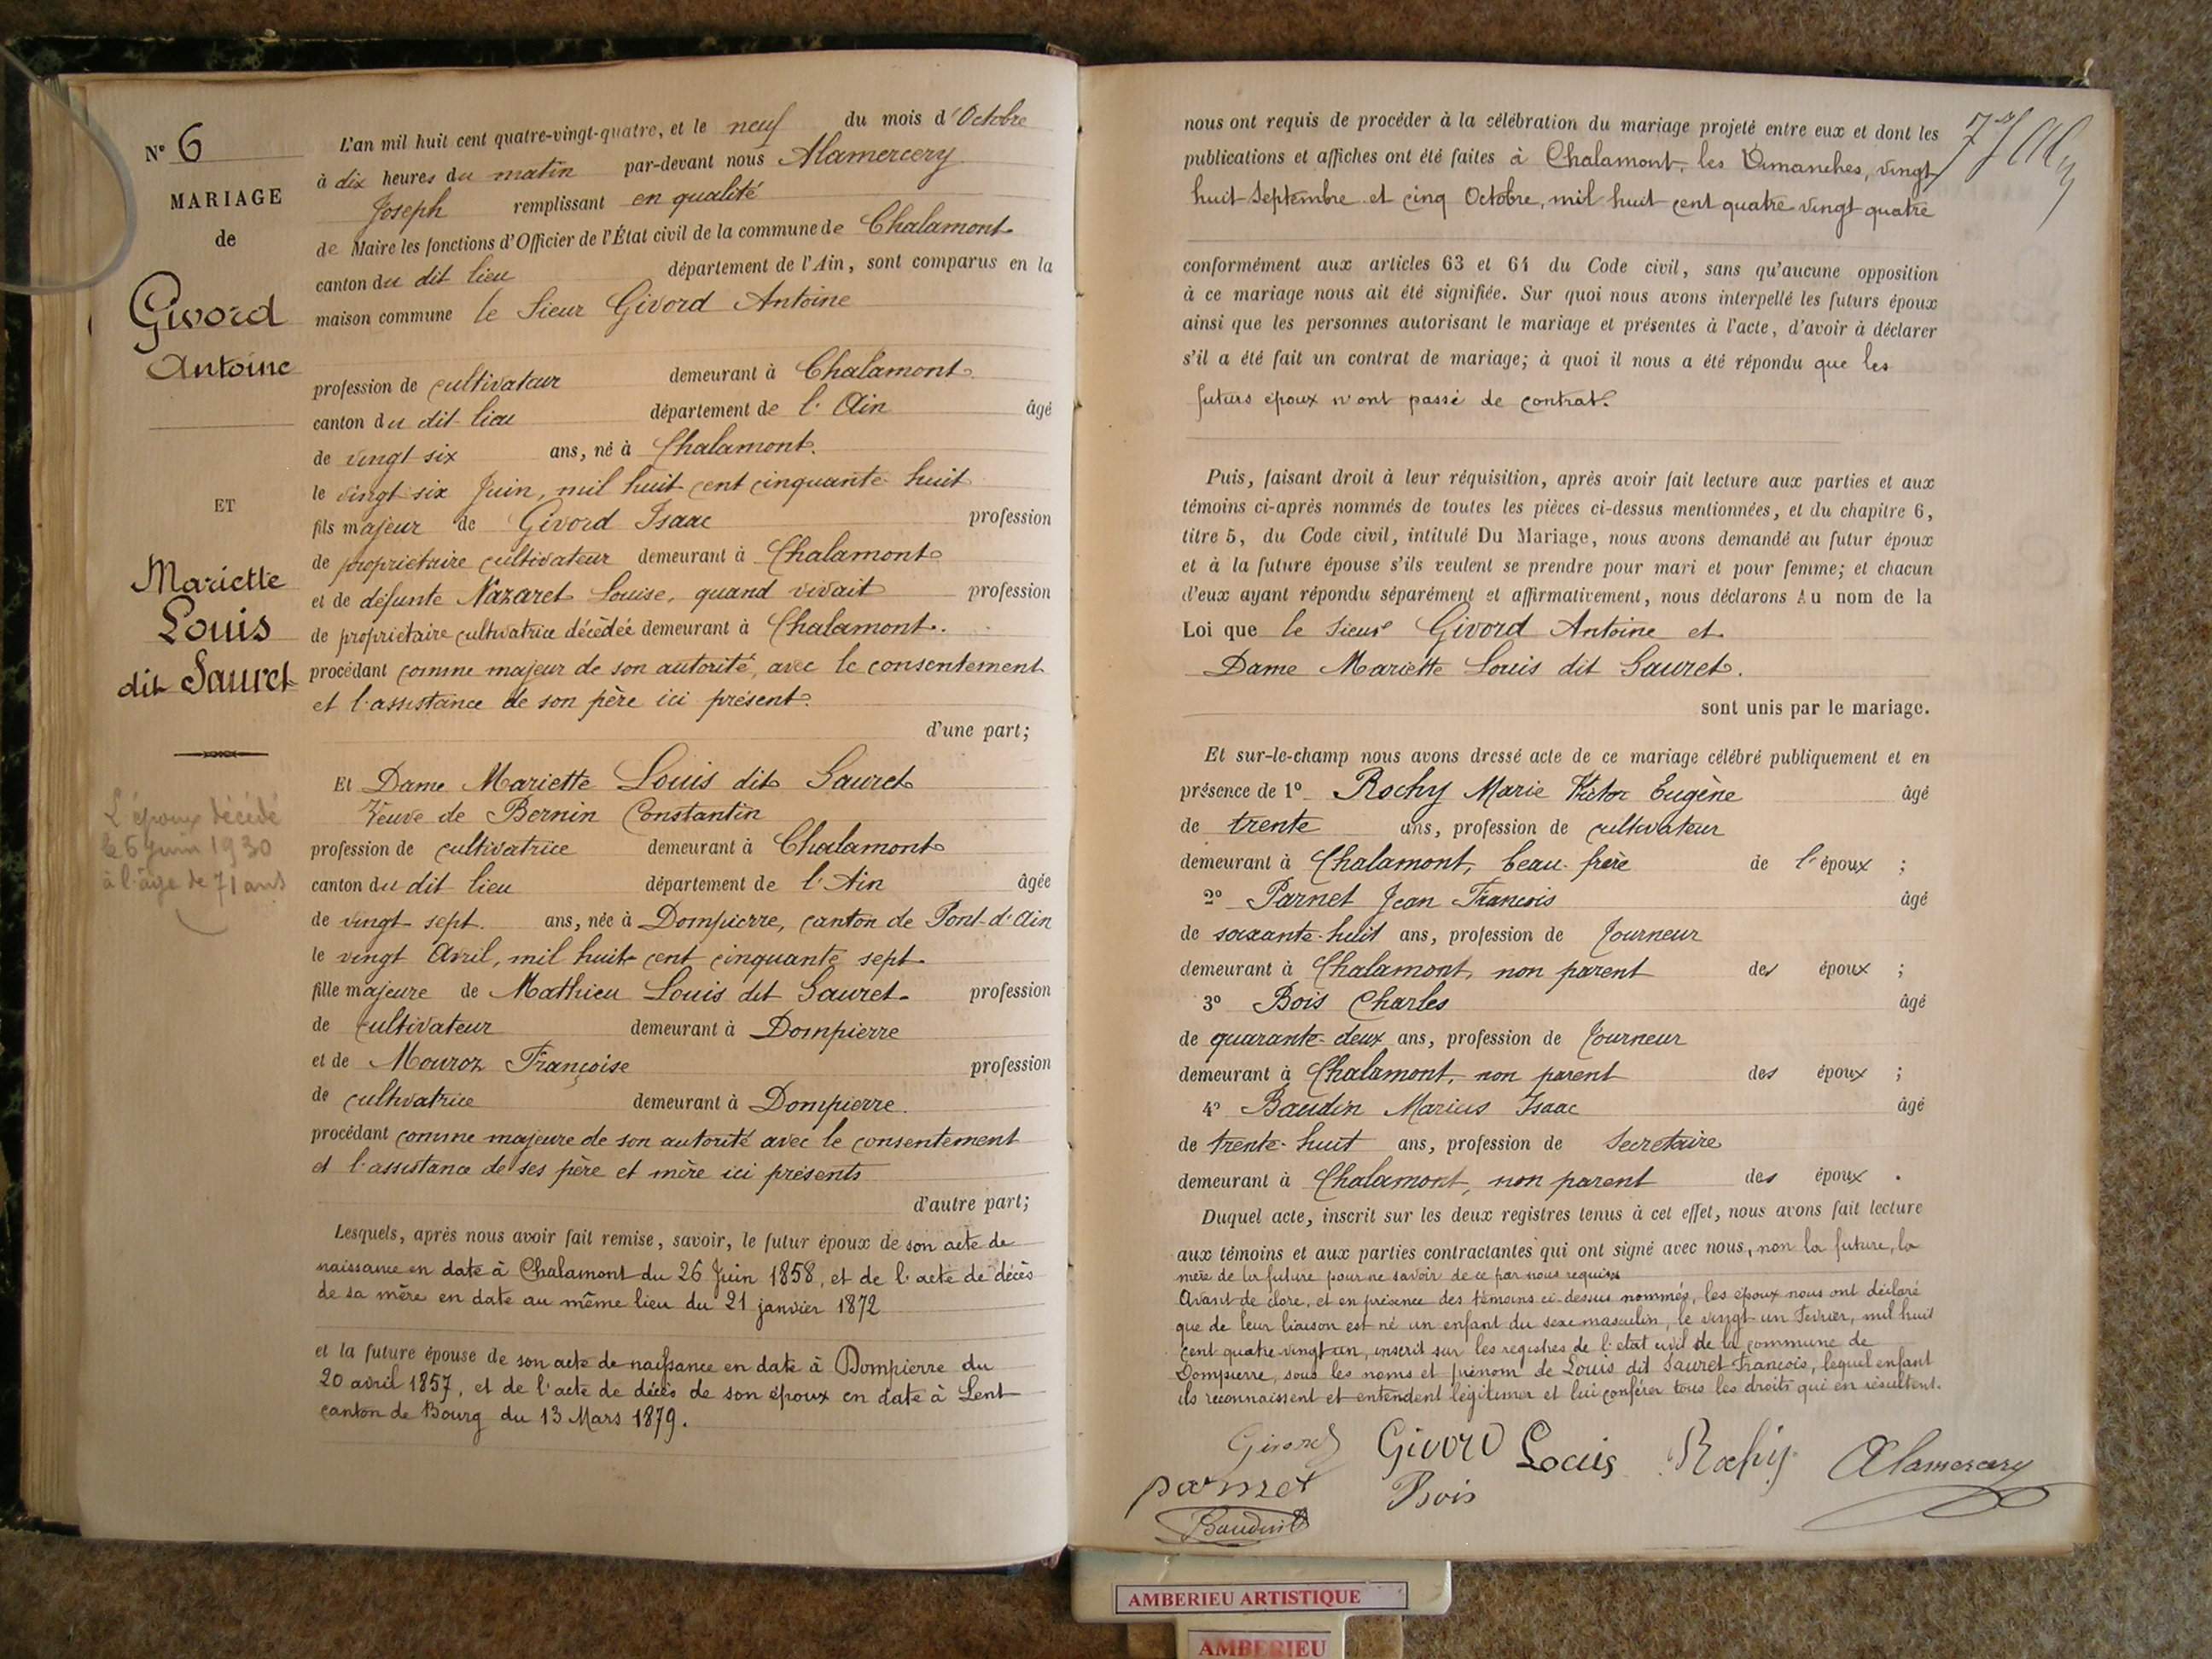 N° 6
MARIAGE
de
Givord
Antoine
ET
Mariette
Louis
dit Sauret
L'époux décédé
le 6 juin 1930
à l'âge de 71 ans
L'an mil huit cent quatre-vingt-quatre, et le neuf du mois d'Octobre
à dix heures du matin par-devant nous Alamercery
Joseph remplissant en qualité
de Maire les fonctions d'Officier de l'État civil de la commune de Chalamont
canton du dit lieu département de l'Ain, sont comparus en la
maison commune le Sieur Givord Antoine
profession de cultivateur demeurant à Chalamont
canton du dit lieu département de l'Ain âgé
de vingt six ans, né à Chalamont.
le vingt six Juin, mil huit cent cinquante huit
fils majeur de Givord Isaac profession
de propriétaire cultivateur demeurant à Chalamont
et de défunte Nazaret Louise, quand vivait profession
de propriétaire cultivatrice décédée demeurant à Chalamont.
procédant comme majeur de son autorité, avec le consentement
et l'assistance de son père ici présent.
d'une part;
Et Dame Mariette Louis dit Sauret
Veuve de Bernin Constantin
profession de cultivatrice demeurant à Chalamont
canton du dit lieu département de l'Ain âgée
de vingt sept. ans, née à Dompierre, canton de Pont-d'Ain
le vingt Avril, mil huit cent cinquante sept.
fille majeure de Mathieu Louis dit Sauret. profession
de cultivateur demeurant à Dompierre
et de Mouroz Françoise profession
de cultivatrice demeurant à Dompierre.
procédant comme majeure de son autorité avec le consentement
et l'assistance de ses père et mère ici présents
d'autre part;
Lesquels, après nous avoir fait remise, savoir, le futur époux de son acte de
naissance en date à Chalamont du 26 Juin 1858, et de l'acte de décès
de sa mère en date au même lieu du 21 janvier 1872
et la future épouse de son acte de naissance en date à Dompierre du
20 avril 1857, et de l'acte de décès de son époux en date à Lent
canton de Bourg du 13 Mars 1879.
nous ont requis de procéder à la célébration du mariage projeté entre eux et dont les
publications et affiches ont été faites à Chalamont, les Dimanches, vingt
huit Septembre et cinq Octobre, mil huit cent quatre vingt quatre
conformément aux articles 63 et 64 du Code civil, sans qu'aucune opposition
à ce mariage nous ait été signifiée. Sur quoi nous avons interpellé les futurs époux
ainsi que les personnes autorisant le mariage et présentes à l'acte, d'avoir à déclarer
s'il a été fait un contrat de mariage; à quoi il nous a été répondu que les
futurs époux n'ont passé de contrat.
Puis, faisant droit à leur réquisition, après avoir fait lecture aux parties et aux
témoins ci-après nommés de toutes les pièces ci-dessus mentionnées, et du chapitre 6,
titre 5, du Code civil, intitulé Du Mariage, nous avons demandé au futur époux
et à la future épouse s'ils veulent se prendre pour mari et pour femme; et chacun
d'eux ayant répondu séparément et affirmativement, nous déclarons Au nom de la
Loi que le Sieur Givord Antoine et
Dame Mariette Louis dit Sauret.
sont unis par le mariage.
Et sur-le-champ nous avons dressé acte de ce mariage célébré publiquement et en
présence de 1° Rochy Marie Victor Eugène âgé
de trente ans, profession de cultivateur
demeurant à Chalamont, beau-frère de l'époux ;
2° Parnet Jean François âgé
de soixante-huit ans, profession de Tourneur
demeurant à Chalamont, non parent des époux ;
3° Bois Charles âgé
de quarante-deux ans, profession de Tourneur
demeurant à Chalamont, non parent des époux ;
4° Baudin Marius Isaac âgé
de trente-huit ans, profession de Secrétaire
demeurant à Chalamont, non parent des époux .
Duquel acte, inscrit sur les deux registres tenus à cet effet, nous avons fait lecture
aux témoins et aux parties contractantes qui ont signé avec nous, non la future, la
mère de la future pour ne savoir de ce par nous requises
Avant de clore, et en présence des témoins ci-dessus nommés, les époux nous ont déclaré
que de leur liaison est né un enfant du sexe masculin, le vingt-un Février, mil huit
cent quatre vingt un, inscrit sur les registres de l'état civil de la commune de
Dompierre, sous les noms et prénom de Louis dit Sauret François, lequel enfant
ils reconnaissent et entendent légitimer et lui conférer tous les droits qui en résultent.
Givord Givord Louis Rochy Alamercery
parnet Bois
Baudin
AMBERIEU ARTISTIQUE
AMBERIEU